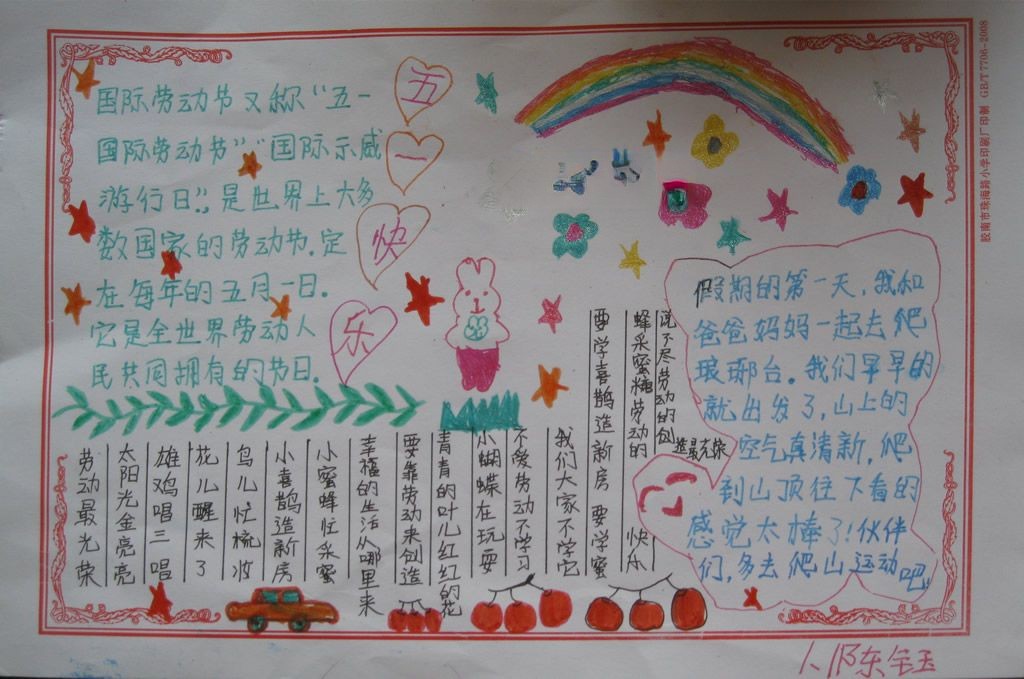 国际劳动节又称“五一
国际劳动节”“国际示威
游行日”,是世界上大多
数国家的劳动节.定
在每年的五月一日.
它是全世界劳动人
民共同拥有的节日.
五
一
快
乐
劳动最光荣
太阳光金亮亮
雄鸡唱三唱
花儿醒来了
鸟儿忙梳妆
小喜鹊造新房
小蜜蜂忙采蜜
幸福的生活从哪里来
要靠劳动来创造
青青的叶儿红红的花
小蝴蝶在玩耍
不爱劳动不学习
我们大家不学它
要学喜鹊造新房 要学蜜
蜂采蜜糖劳动的 快
说不尽劳动的创
造最光荣
假期的第一天,我和
爸爸妈妈一起去爬
琅琊台。我们早早的
就出发了,山上的
空气真清新,爬
到山顶往下看的
感觉太棒了!伙伴
们,多去爬山运动
吧
胶南市珠海路小学印刷厂印制 GB/T7705-2008